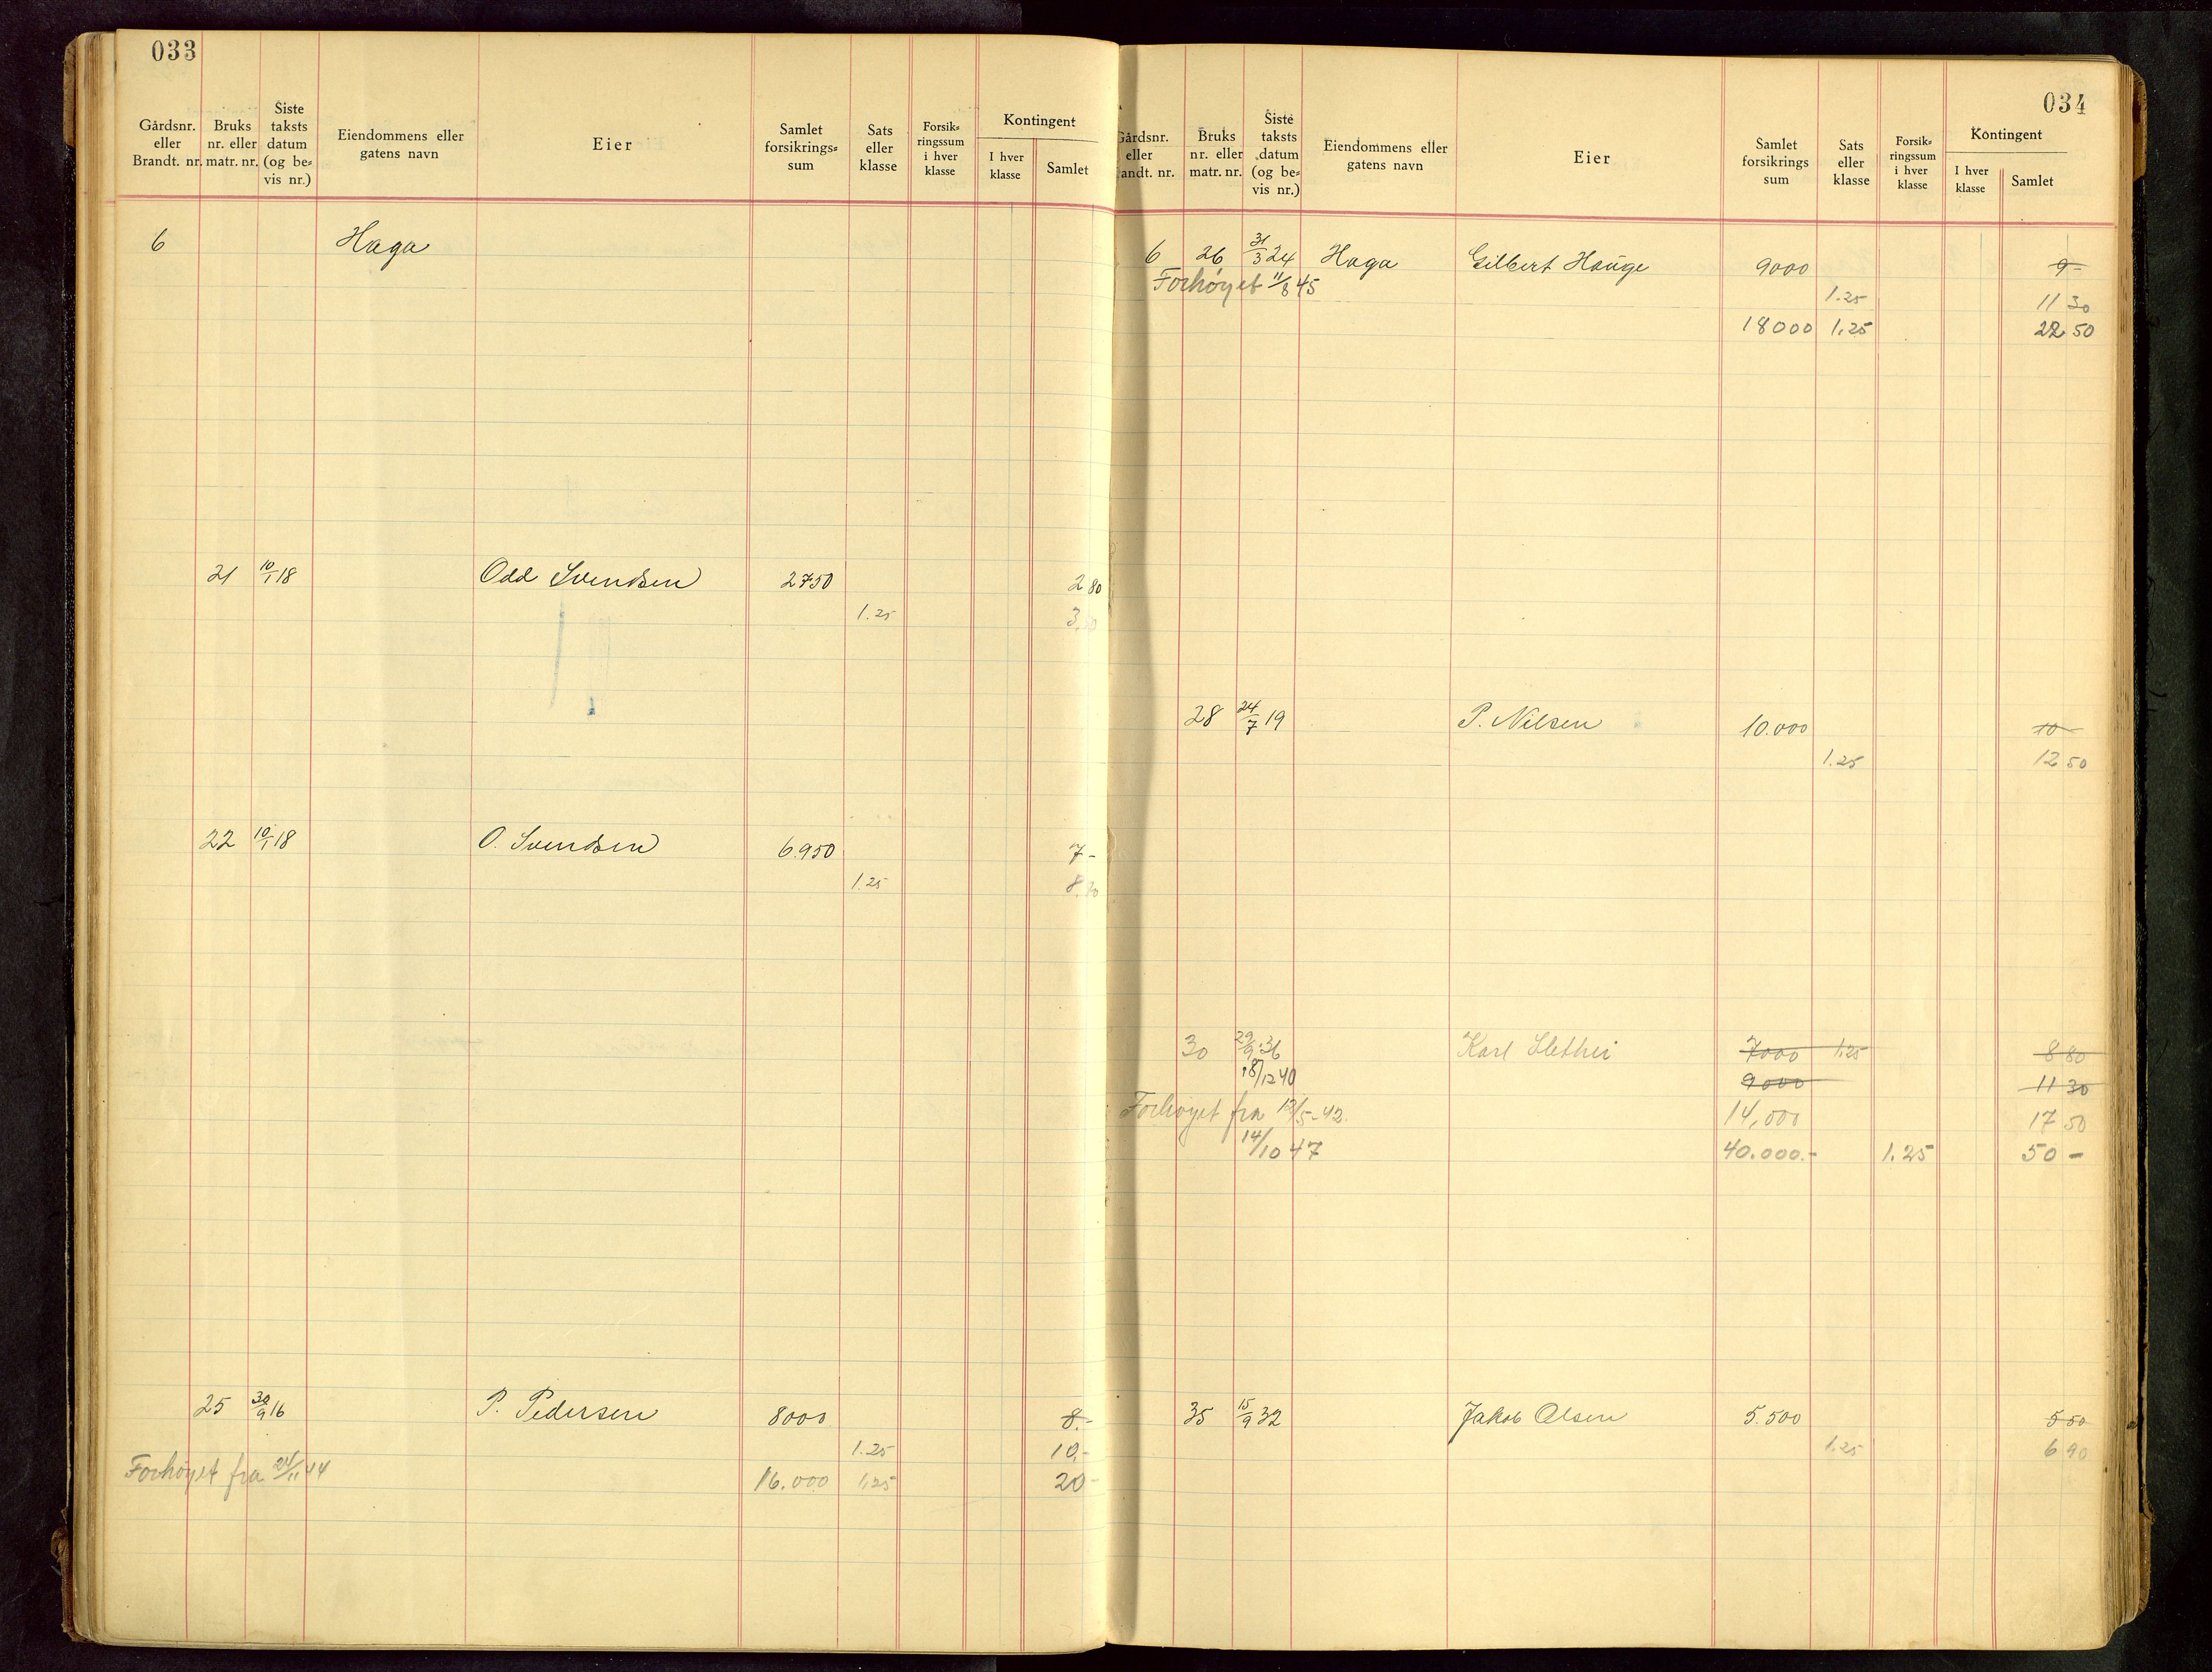 033
Gårdsnr. eller Brandt. nr.
Bruks nr. eller matr. nr.
Siste taksts datum (og bevis nr.)
Eiendommens eller gatens navn
Eier
Samlet forsikrings=sum
Sats eller klasse
Forsik=ringssum i hver klasse
Kontingent
I hver klasse
Samlet
6 Haga
21 10/1 18 Odd Svendsen 2750 2 80
1.25
22 10/1 18 O. Svendsen 6.950 7-
1.25
25 30/9 16 P. Pedersen 8000 8.-
1.25 10,-
Forhöyet fra 24/11 44 16.000 1,25 20-
034
Gårdsnr. eller Brandt. nr.
Bruks nr. eller matr. nr.
Siste taksts datum (og be=vis nr.)
Eiendommens eller gatens navn
Eier
Samlet forsikrings sum
Sats eller klasse
Forsik=ringssum i hver klasse
Kontingent
I hver klasse
Samlet
6 26 31/3 24 Haga Gilbert Hauge 9000 9-
Forhöyet 11/8 45
1.25 11 30
18000 1,25 22 50
28 24/7 19 P. Nilsen 10.000 10-
1.25 12 50
30 29/9 36 Karl Slethei 7000 1.25 8 80
18/12 40 9000 11 30
Forhøyet fra 12/5-42. 14,000 17 50
14/10 47 40.000.- 1.25 50-
35 15/9 32 Jakob Olsen 5.500 5 50
1.25 6 90